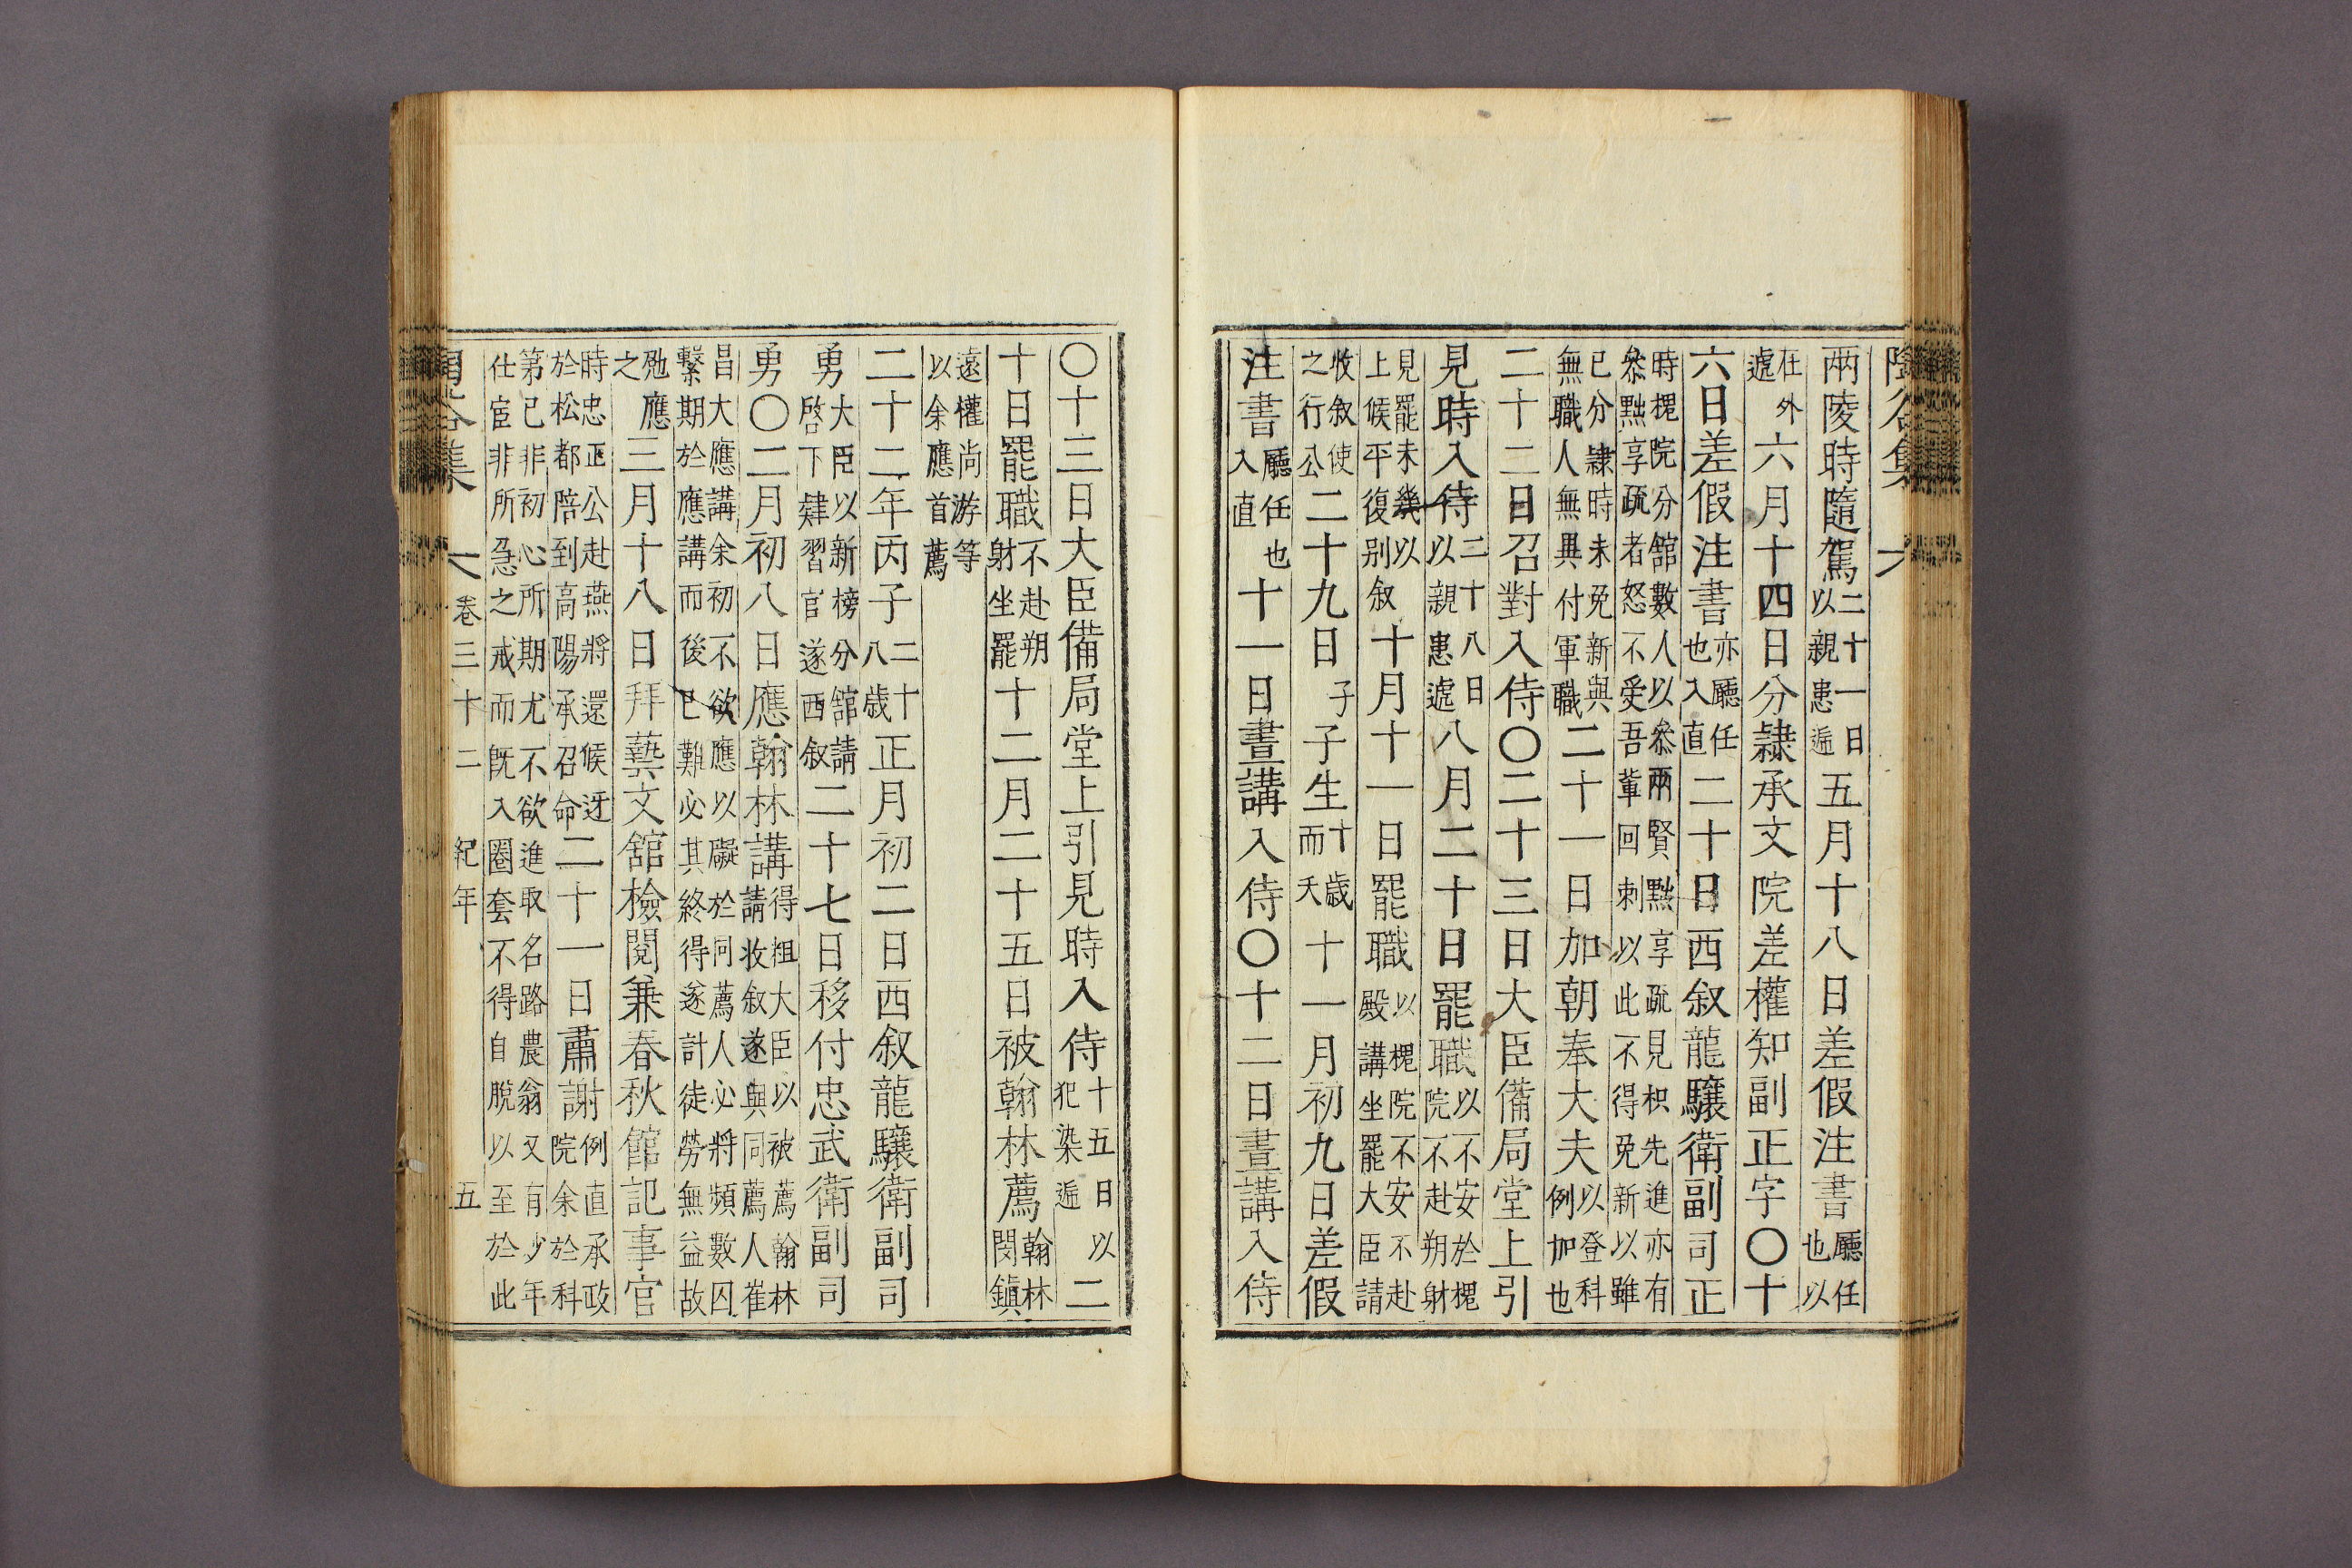 陶谷集
兩陵時隨駕二十一日以親患遞五月十八日差假注書廳任也以
在外遞六月十四日分隸承文院差權知副正字〇十
六日差假注書亦廳任也入直二十日西叙龍驤衛副司正
時槐院分舘數人以叅兩賢黜享疏見枳先進亦有
叅黜享疏者怒不受吾軰回刺以此不得免新以雖
已分隷時未免新與無職人無異付軍職二十一日加朝奉大夫以登科例加也
二十二日召對入侍〇二十三日大臣備局堂上引
見時入侍二十八日以親患遞八月二十日罷職以不安於槐院不赴朔射
見罷未幾以上候平復別叙十月十一日罷職以槐院不安不赴殿講坐罷大臣請
收叙使之行公二十九日子子生十歲而夭十一月初九日差假
注書廳任也入直十一日晝講入侍〇十二日晝講入侍
〇十三日大臣備局堂上引見時入侍十五日以犯染遞二
十日罷職不赴朔射坐罷十二月二十五日被翰林薦翰林閔鎭
遠權尚游等以余應首薦
二十二年丙子二十八歲正月初二日西叙龍驤衛副司
勇大臣以新榜分舘請啓下肄習官遂西叙二十七日移付忠武衛副司
勇〇二月初八日應翰林講得粗大臣以被薦翰林請收叙遂與同薦人崔
昌大應講余初不欲應以礙於同薦人必將頻數囚
繫期於應講而後已難必其終得遂計徒勞無益故
勉應之三月十八日拜藝文舘檢閱兼春秋館記事官
時忠正公赴燕將還候迓於松都陪到高陽承召命二十一日肅謝例直承政院余於科
第已非初心所期尤不欲進取名路農翁又有少年
仕宦非所急之戒而旣入圈套不得自脫以至於此
陶谷集 卷三十二 紀年 五